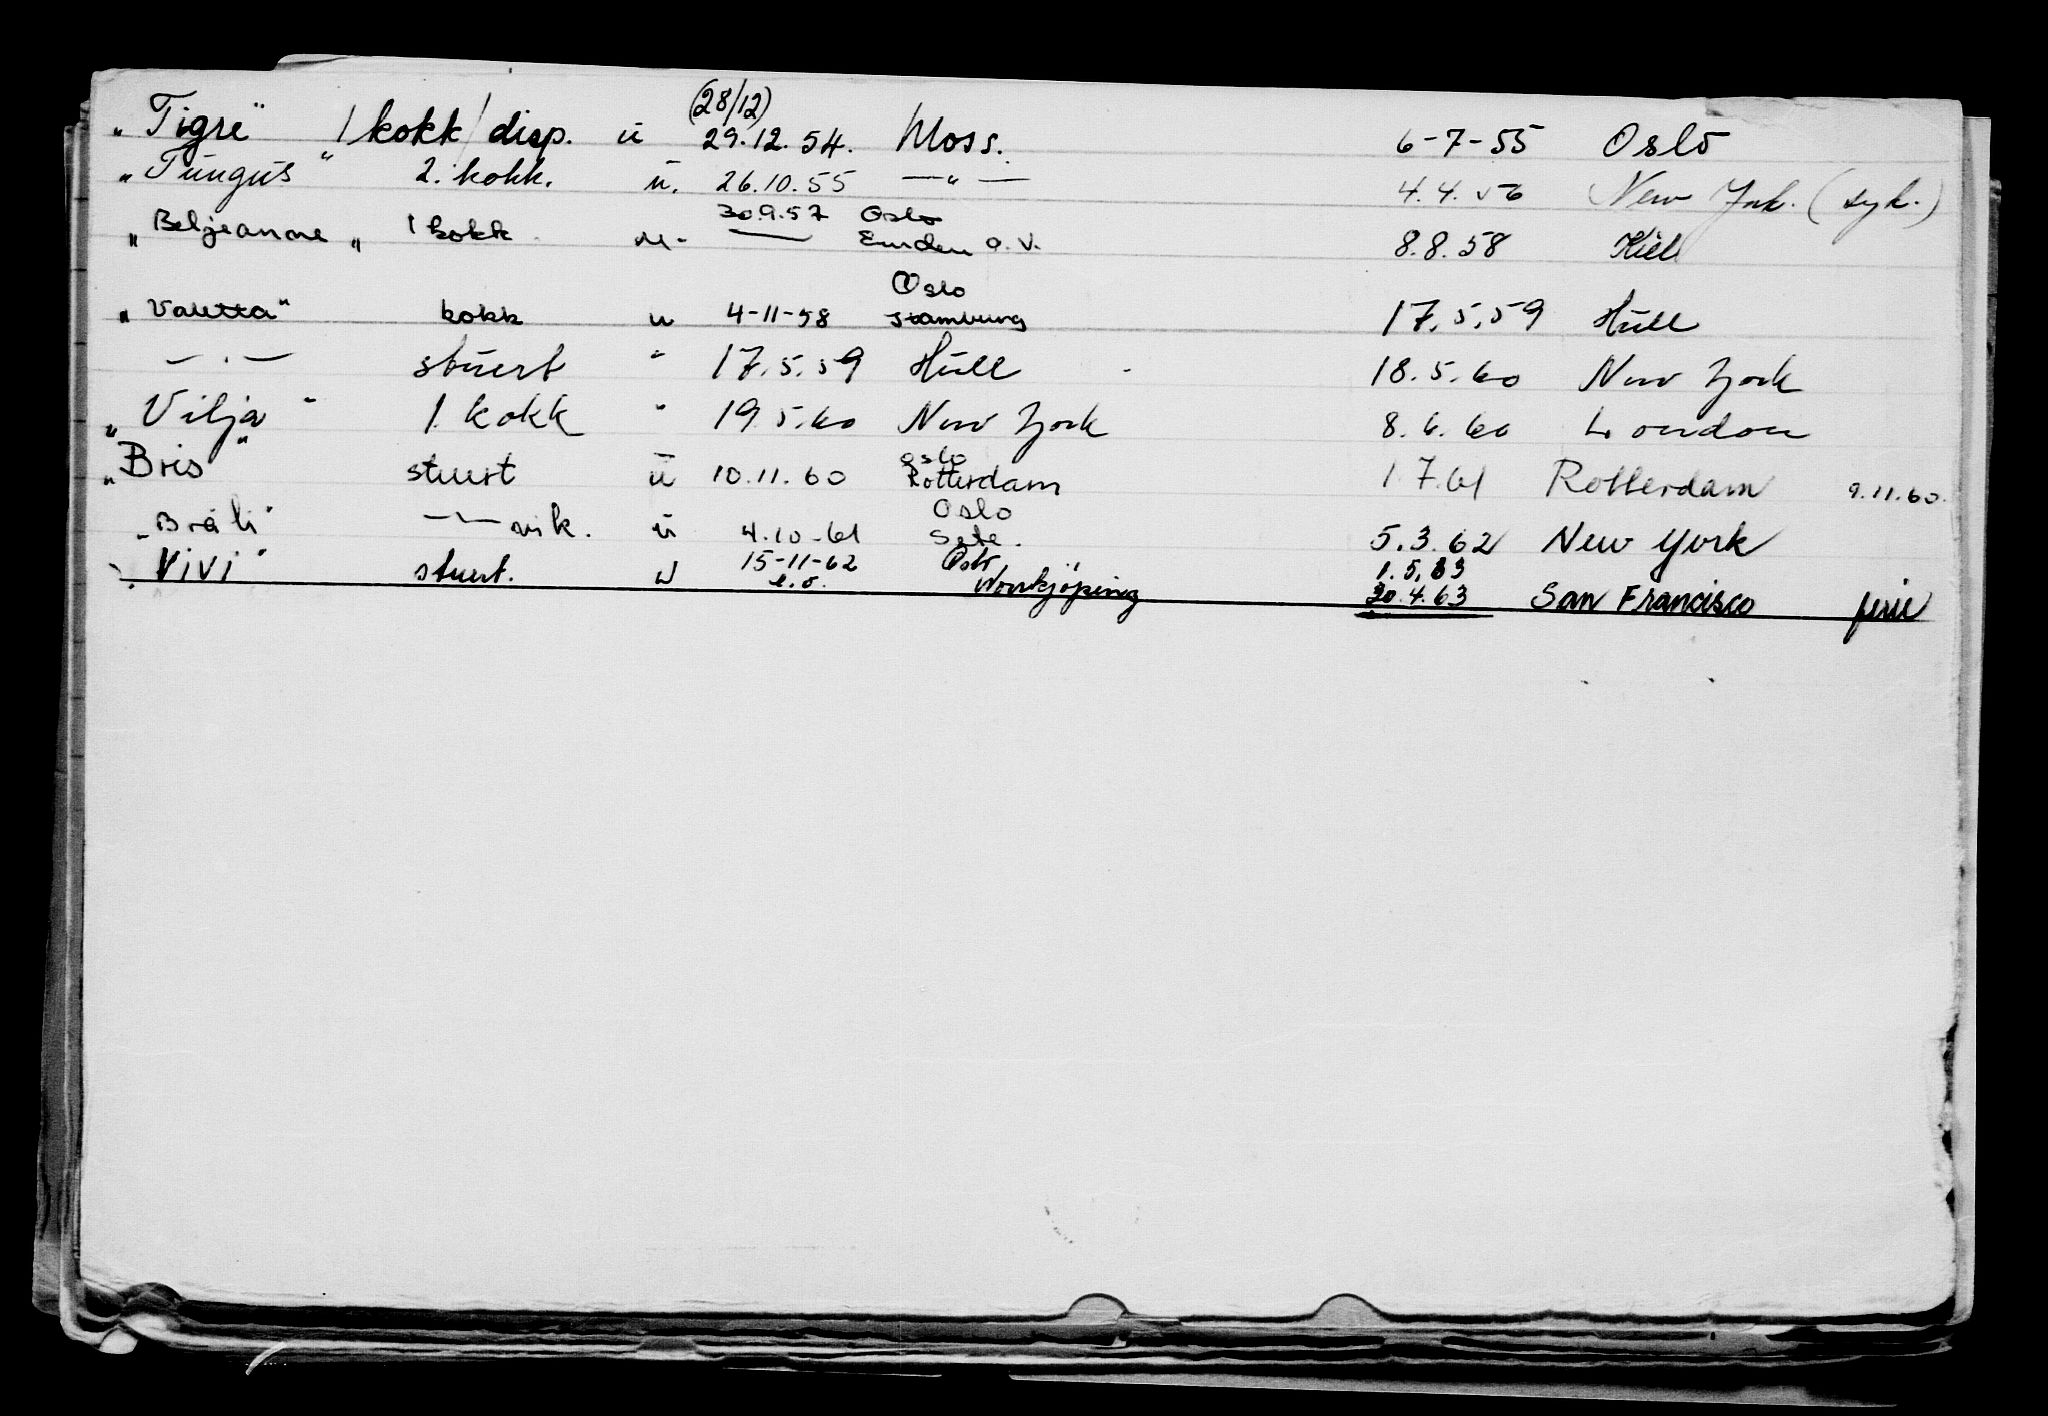 (28/12)
„Tigre" 1 kokk/disp. u 29.12.54. Moss. 6-7-55 Oslo
„Tungus" 2. kokk. u. 26.10.55 —"— 4.4.56 New York. (syk.)
30.9.57 Oslo
„Beljeanne" 1 kokk u. — Emden a.V. 8.8.58 Kiel
Oslo
„Valetta" kokk u 4-11-58 Hamburg 17.5.59 Hull
— . — stuert " 17.5.59 Hull 18.5.60 New York
„Vilja" 1. kokk " 19.5.60 New York 8.6.60 London
oslo
„Bris" stuert u 10.11.60 Rotterdam 1.7.61 Rotterdam 9.11.60.
Oslo
„Bråli" —"— vik. u 4.10-61 Sete. 5.3.62 New York
„Vivi" stuert. u 15-11-62 Oslo 1.5.63
Norrkjöping 30.4.63 San Francisco ferie